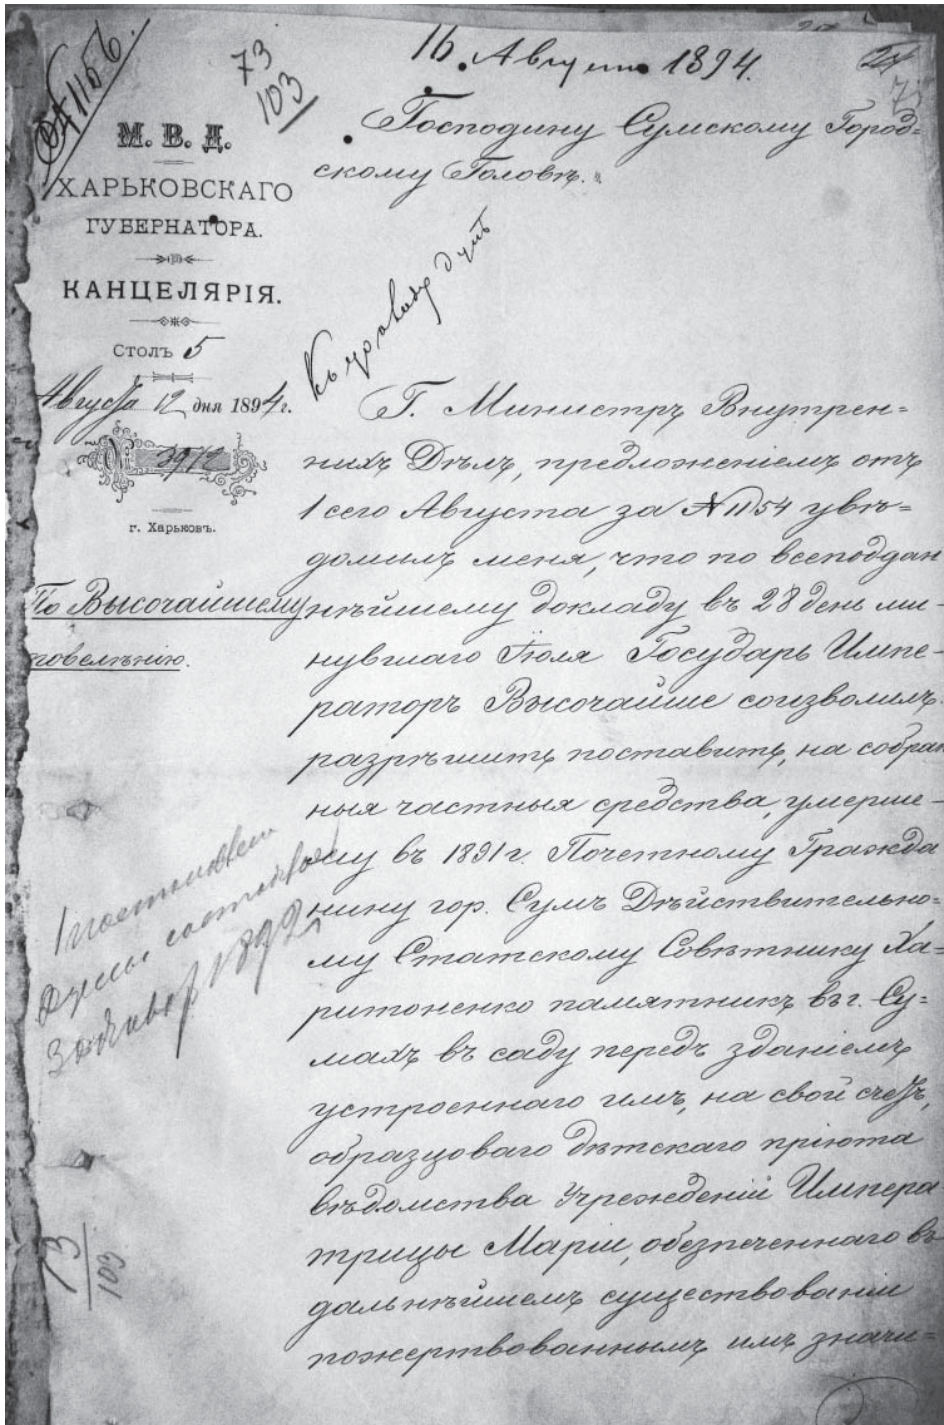 № 1156.
73
103
16. Августа 1894.
24
75
М. В. Д.
ХАРЬКОВСКАГО
ГУБЕРНАТОРА.
КАНЦЕЛЯРІЯ.
Столъ 5
Августа 12 дня 1894 г.
№ 3972
г. Харьковъ.
По Высочайшему
повелѣнію.
Господину Сумскому Город=
скому Головѣ.
Г. Министръ Внутрен=
нихъ Дѣлъ, предложеніемъ отъ
1 сего Августа за № 1154 увѣ=
домилъ меня, что по всеподдан
нѣйшему докладу въ 28 день ми-
нувшаго Іюля Государь Импе-
раторъ Высочайше соизволилъ
разрѣшить поставить, на собран
ныя частныя средства, умерше-
му въ 1891 г. Почетному Гражда
нину гор. Сумъ Дѣйствительно=
му Статскому Совѣтнику Ха=
ритоненко памятникъ въ г. Су=
махъ въ саду передъ зданіемъ
устроеннаго имъ, на свой счетъ,
образцоваго дѣтскаго пріюта
вѣдомства Учрежденій Импера
трицы Маріи, обезпеченнаго въ
дальнѣйшемъ существованіи
пожертвованнымъ имъ значи=
Думы
1892
73
103